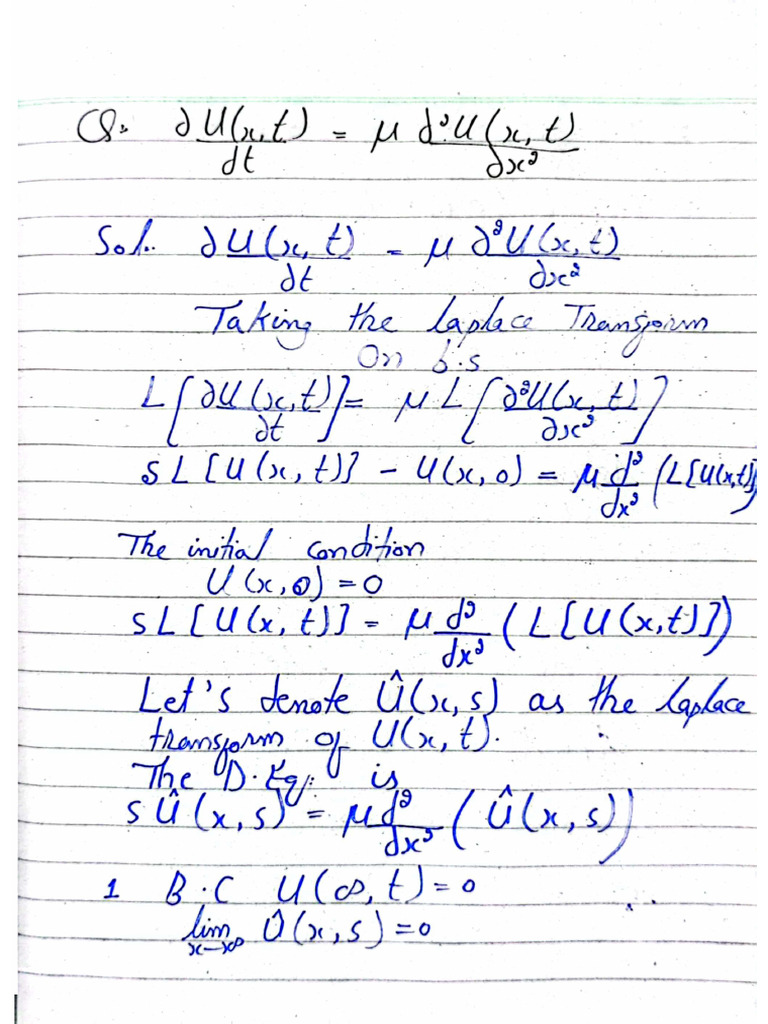 Q. ∂U(x,t)/dt = μ ∂²U(x,t)/∂x²
Sol. ∂U(x,t)/∂t = μ ∂²U(x,t)/∂x²
Taking the laplace Transform
On b.s
L[∂U(x,t)/∂t] = μ L[∂²U(x,t)/∂x²]
s L[U(x,t)] - U(x,0) = μ d²/dx² (L[U(x,t)])
The initial condition
U(x,0) = 0
s L[U(x,t)] = μ d²/dx² (L[U(x,t)])
Let's denote Û(x,s) as the laplace
transform of U(x,t).
The D.Eq: is
s Û(x,s) = μ d²/dx² (Û(x,s))
1 B.C U(∞,t) = 0
lim x→∞ Û(x,s) = 0